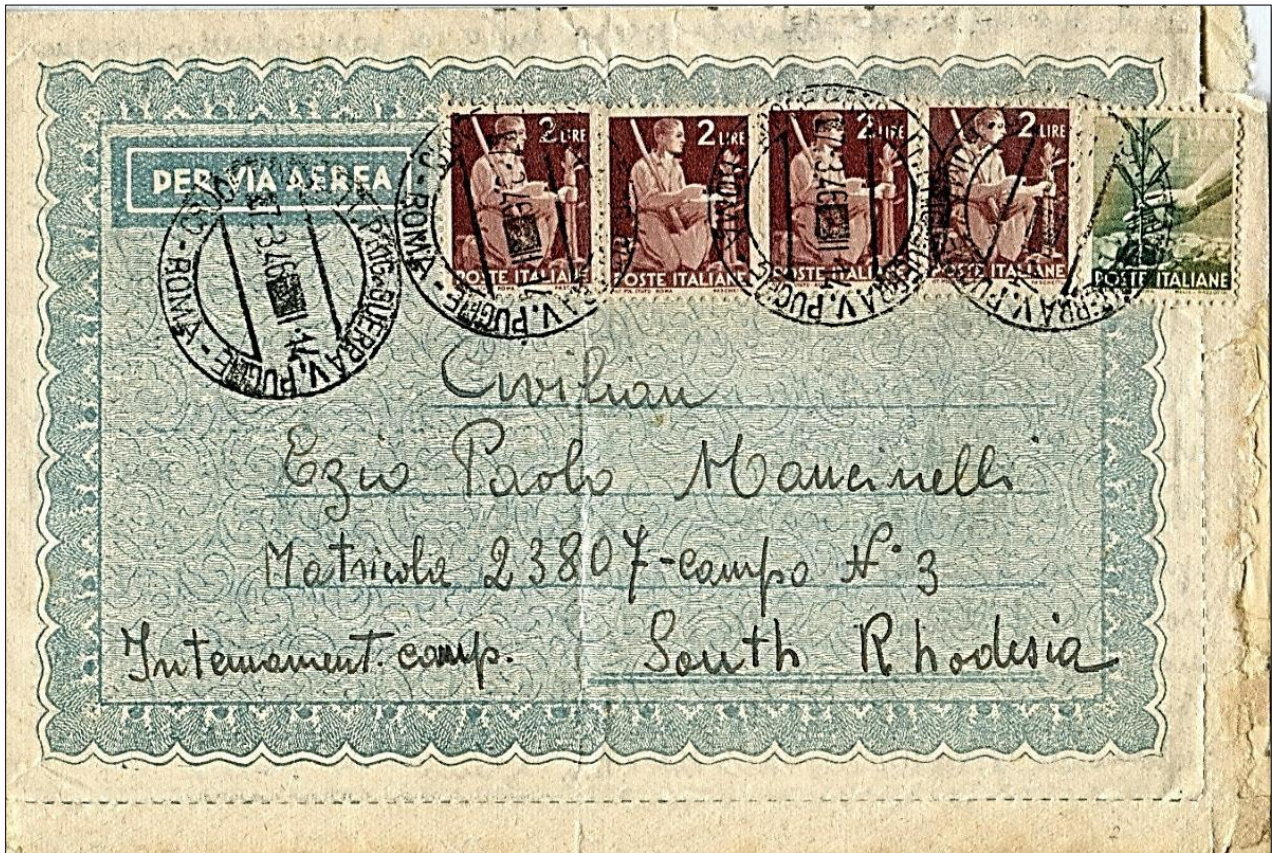 PER VIA AEREA
2 LIRE 2 LIRE 2 LIRE 2 LIRE
POSTE ITALIANE POSTE ITALIANE POSTE ITALIANE POSTE ITALIANE POSTE ITALIANE
GUERRA V. PUGLIE - ROMA
3.46
Civilian
Ezio Paolo Mancinelli
Matricola 23807-campo N° 3
Internament. camp. South Rhodesia